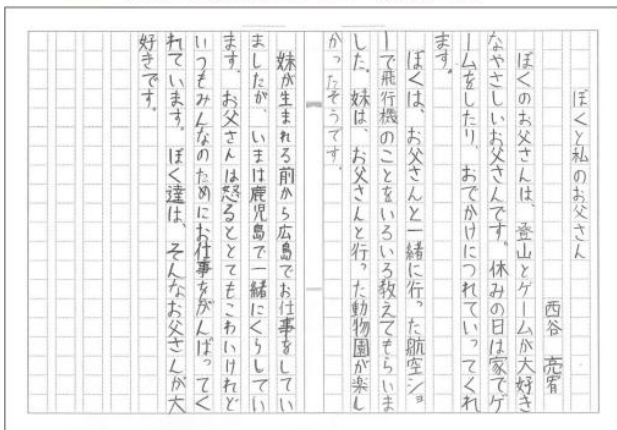 ぼくと私のお父さん
西谷 亮宥
ぼくのお父さんは、登山とゲームが大好き
なやさしいお父さんです。休みの日は家でゲ
ームをしたり、おでかけにつれていってくれ
ます。
ぼくは、お父さんと一緒に行った航空ショ
ーで飛行機のことをいろいろ教えてもらいま
した。妹は、お父さんと行った動物園が楽し
かったそうです。
妹が生まれる前から広島でお仕事をしてい
ましたが、いまは鹿児島で一緒にくらしてい
ます。お父さんは怒るととてもこわいけれど
いつもみんなのためにお仕事をがんばってく
れています。ぼく達は、そんなお父さんが大
好きです。